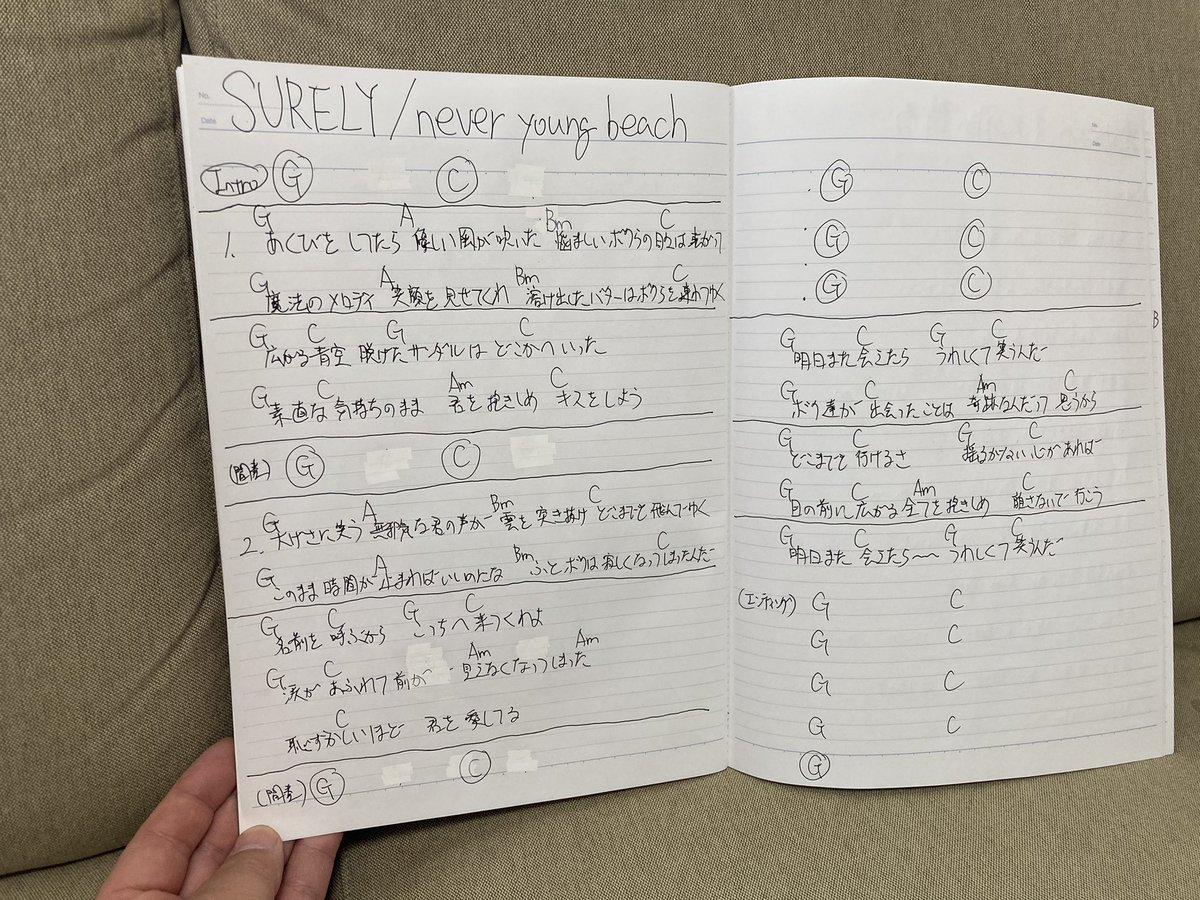 No.
Date
SURELY / never young beach
Intro G C
G A Bm C
1. あくびを してたら 優しい風が吹いた 悩ましいボクらの日々は
G A Bm C
魔法のメロディ 笑顔を見せてくれ 溶け出したバターはボクらを連れてゆく
G C G C
広がる青空 脱げたサンダルは どこかへいった
G C Am C
素直な気持ちのまま 君を抱きしめ キスをしよう
(間奏) G C
G A Bm C
2. 大げさに笑う 無邪気な君の声が 雲を突きぬけ どこまでも飛んでゆく
G A Bm C
このまま時間が止まればいいのにな ふとボクは寂しくなってしまったんだ
G C G C
名前を 呼ぶから こっちへ来てくれよ
G C Am Am
涙が あふれて前が 見えなくなってしまった
C
恥ずかしいほど 君を愛してる
(間奏) G C
No
Date
G C
G C
G C
B
G C G C
明日また 会えたら うれしくて笑うんだ
G C Am C
ボク達が 出会ったことは 奇跡なんだって 思うから
G C G C
どこまでも 行けるさ 揺るがない心があれば
G C Am C
目の前に 広がる全てを抱きしめ 離さないで行こう
G C G C
明日また 会えたら〜〜 うれしくて笑うんだ
(エンディング) G C
G C
G C
G C
G